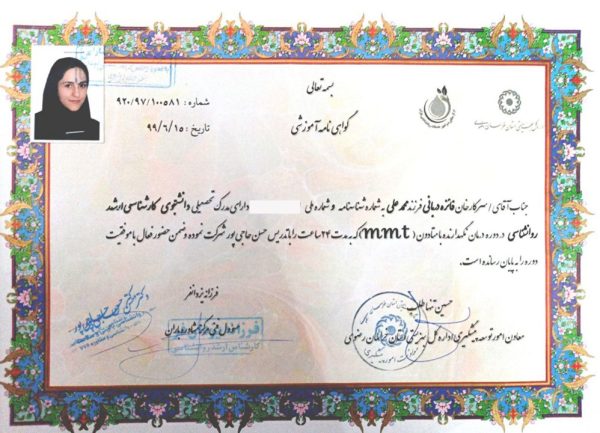 بسمه تعالی
گواهی نامه آموزشی
شماره : ۹۲۰/۹۷/۱۰۰۵۸۱
تاریخ : ۹۹/۶/۱۵
جناب آقای / سرکار خانم فائزه دربانی فرزند محمد علی به شماره شناسنامه و شماره ملی دارای مدرک تحصیلی دانشجوی کارشناسی ارشد
روانشناسی در دوره درمان نگهدارنده با متادون ( mmt ) که به مدت ۲۴ ساعت را با تدریس حسن حاجی پور شرکت نموده و ضمن حضور فعال با موفقیت
دوره را به پایان رسانده است.
حسین تنها طلب
معاون امور توسعه پیشگیری اداره کل بهزیستی استان خراسان رضوی
فرزانه یزدانفر
مسؤول فنی مرکز ستاره باران
کارشناس ارشد روانشناسی